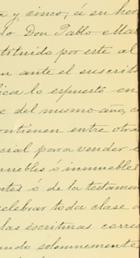 y cinco, á su
lo Don Pablo
tituida por este al
n ante el suscrito
lica lo expuesto en
e del mismo año,
ontienen entre otra
cial para vender
rribles é inmuebles
de la testamen
elebrar toda clase
las escrituras corre
ando solemnemente